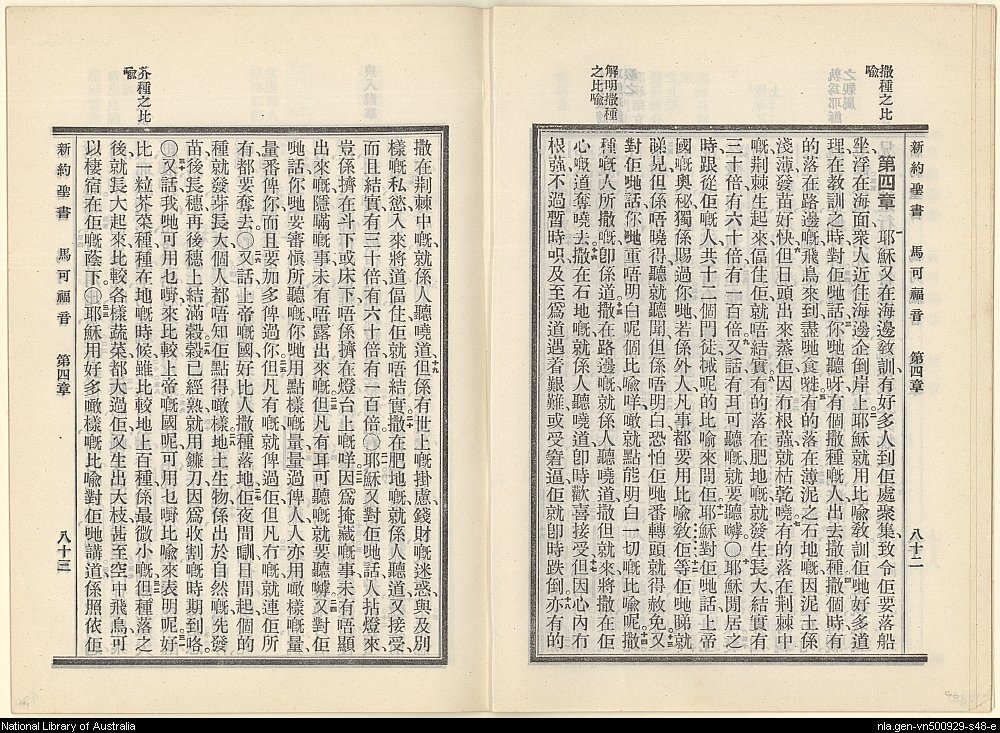 撒種之比
喩
新約聖書　馬可福音　第四章　八十二
第四章　耶穌又在海邊敎訓有好多人到佢處聚集致令佢要落船
坐浮在海面衆人近住海邊企倒岸上耶穌就用比喩敎訓佢哋好多道
理在敎訓之時對佢哋話你哋聽呀有個撒種嘅人出去撒種撒個時有
的落在路邊嘅飛鳥來到盡哋食曉有的落在薄泥之石地嘅因泥土係
淺薄發苗好快但日頭出來蒸佢因冇根強就枯乾曉有的落在荆棘中
嘅荆棘生起來偪住佢就唔結實有的落在肥地嘅就發生長大結實有
三十倍有六十倍有一百倍又話有耳可聽嘅就要聽嚹〇耶穌閒居之
時跟從佢嘅人共十二個門徒揻呢的比喩來問佢耶穌對佢哋話上帝
國嘅奧秘獨係賜過你哋若係外人凡事都要用比喩敎佢等佢哋睇就
睇見但係唔曉得聽就聽聞但係唔明白恐怕佢哋番轉頭就得赦免又
對佢哋話你哋重唔明白呢個比喩咩噉就點能明白一切嘅比喩呢撒
種嘅人所撒嘅卽係道撒在路邊嘅就係人聽曉道撒但就來將撒在佢
心嘅道奪曉去撒在石地嘅就係人聽曉道卽時歡喜接受但因心內冇
根強不過暫時啫及至爲道遇着艱難或受窘逼佢就卽時跌倒亦有的
解明撒種
之比喩
撒在荆棘中嘅就係人聽曉道但係有世上嘅掛慮錢財嘅迷惑與及別
樣嘅私慾入來將道偪住佢就唔結實撒在肥地嘅就係人聽道又接受
而且結實有三十倍有六十倍有一百倍〇耶穌又對佢哋話人拈燈來
豈係擠在斗下或床下唔係擠在燈台上嘅咩因爲掩藏嘅事未有唔顯
出來嘅隱瞞嘅事未有唔露出來嘅但凡有耳可聽嘅就要聽嚹又對佢
哋話你哋要審愼所聽嘅你哋用點樣嘅量量過俾人人亦用噉樣嘅量
量番俾你而且要加多俾過你但凡有嘅就俾過佢但凡冇嘅就連佢所
有都要奪去〇又話上帝嘅國好比人撒種落地佢夜間瞓日間起個的
種就發芽長大個人都唔知佢點得噉樣地土生物係出於自然嘅先發
苗後長穗再後穗上結滿穀穀已經熟就用鐮刀因爲收割嘅時期到咯
〇又話我哋可用乜嘢來比較上帝嘅國呢可用乜嘢比喩來表明呢好
比一粒芥菜種種在地嘅時候雖比較地上百種係最微小嘅但種落之
後就長大起來比較各樣蔬菜都大過佢又生出大枝甚至空中飛鳥可
以棲宿在佢嘅蔭下〇耶穌用好多噉樣嘅比喩對佢哋講道係照依佢
芥種之比
喩
新約聖書　馬可福音　第四章　八十三
National Library of Australia
nla.gen-vn500929-s48-e